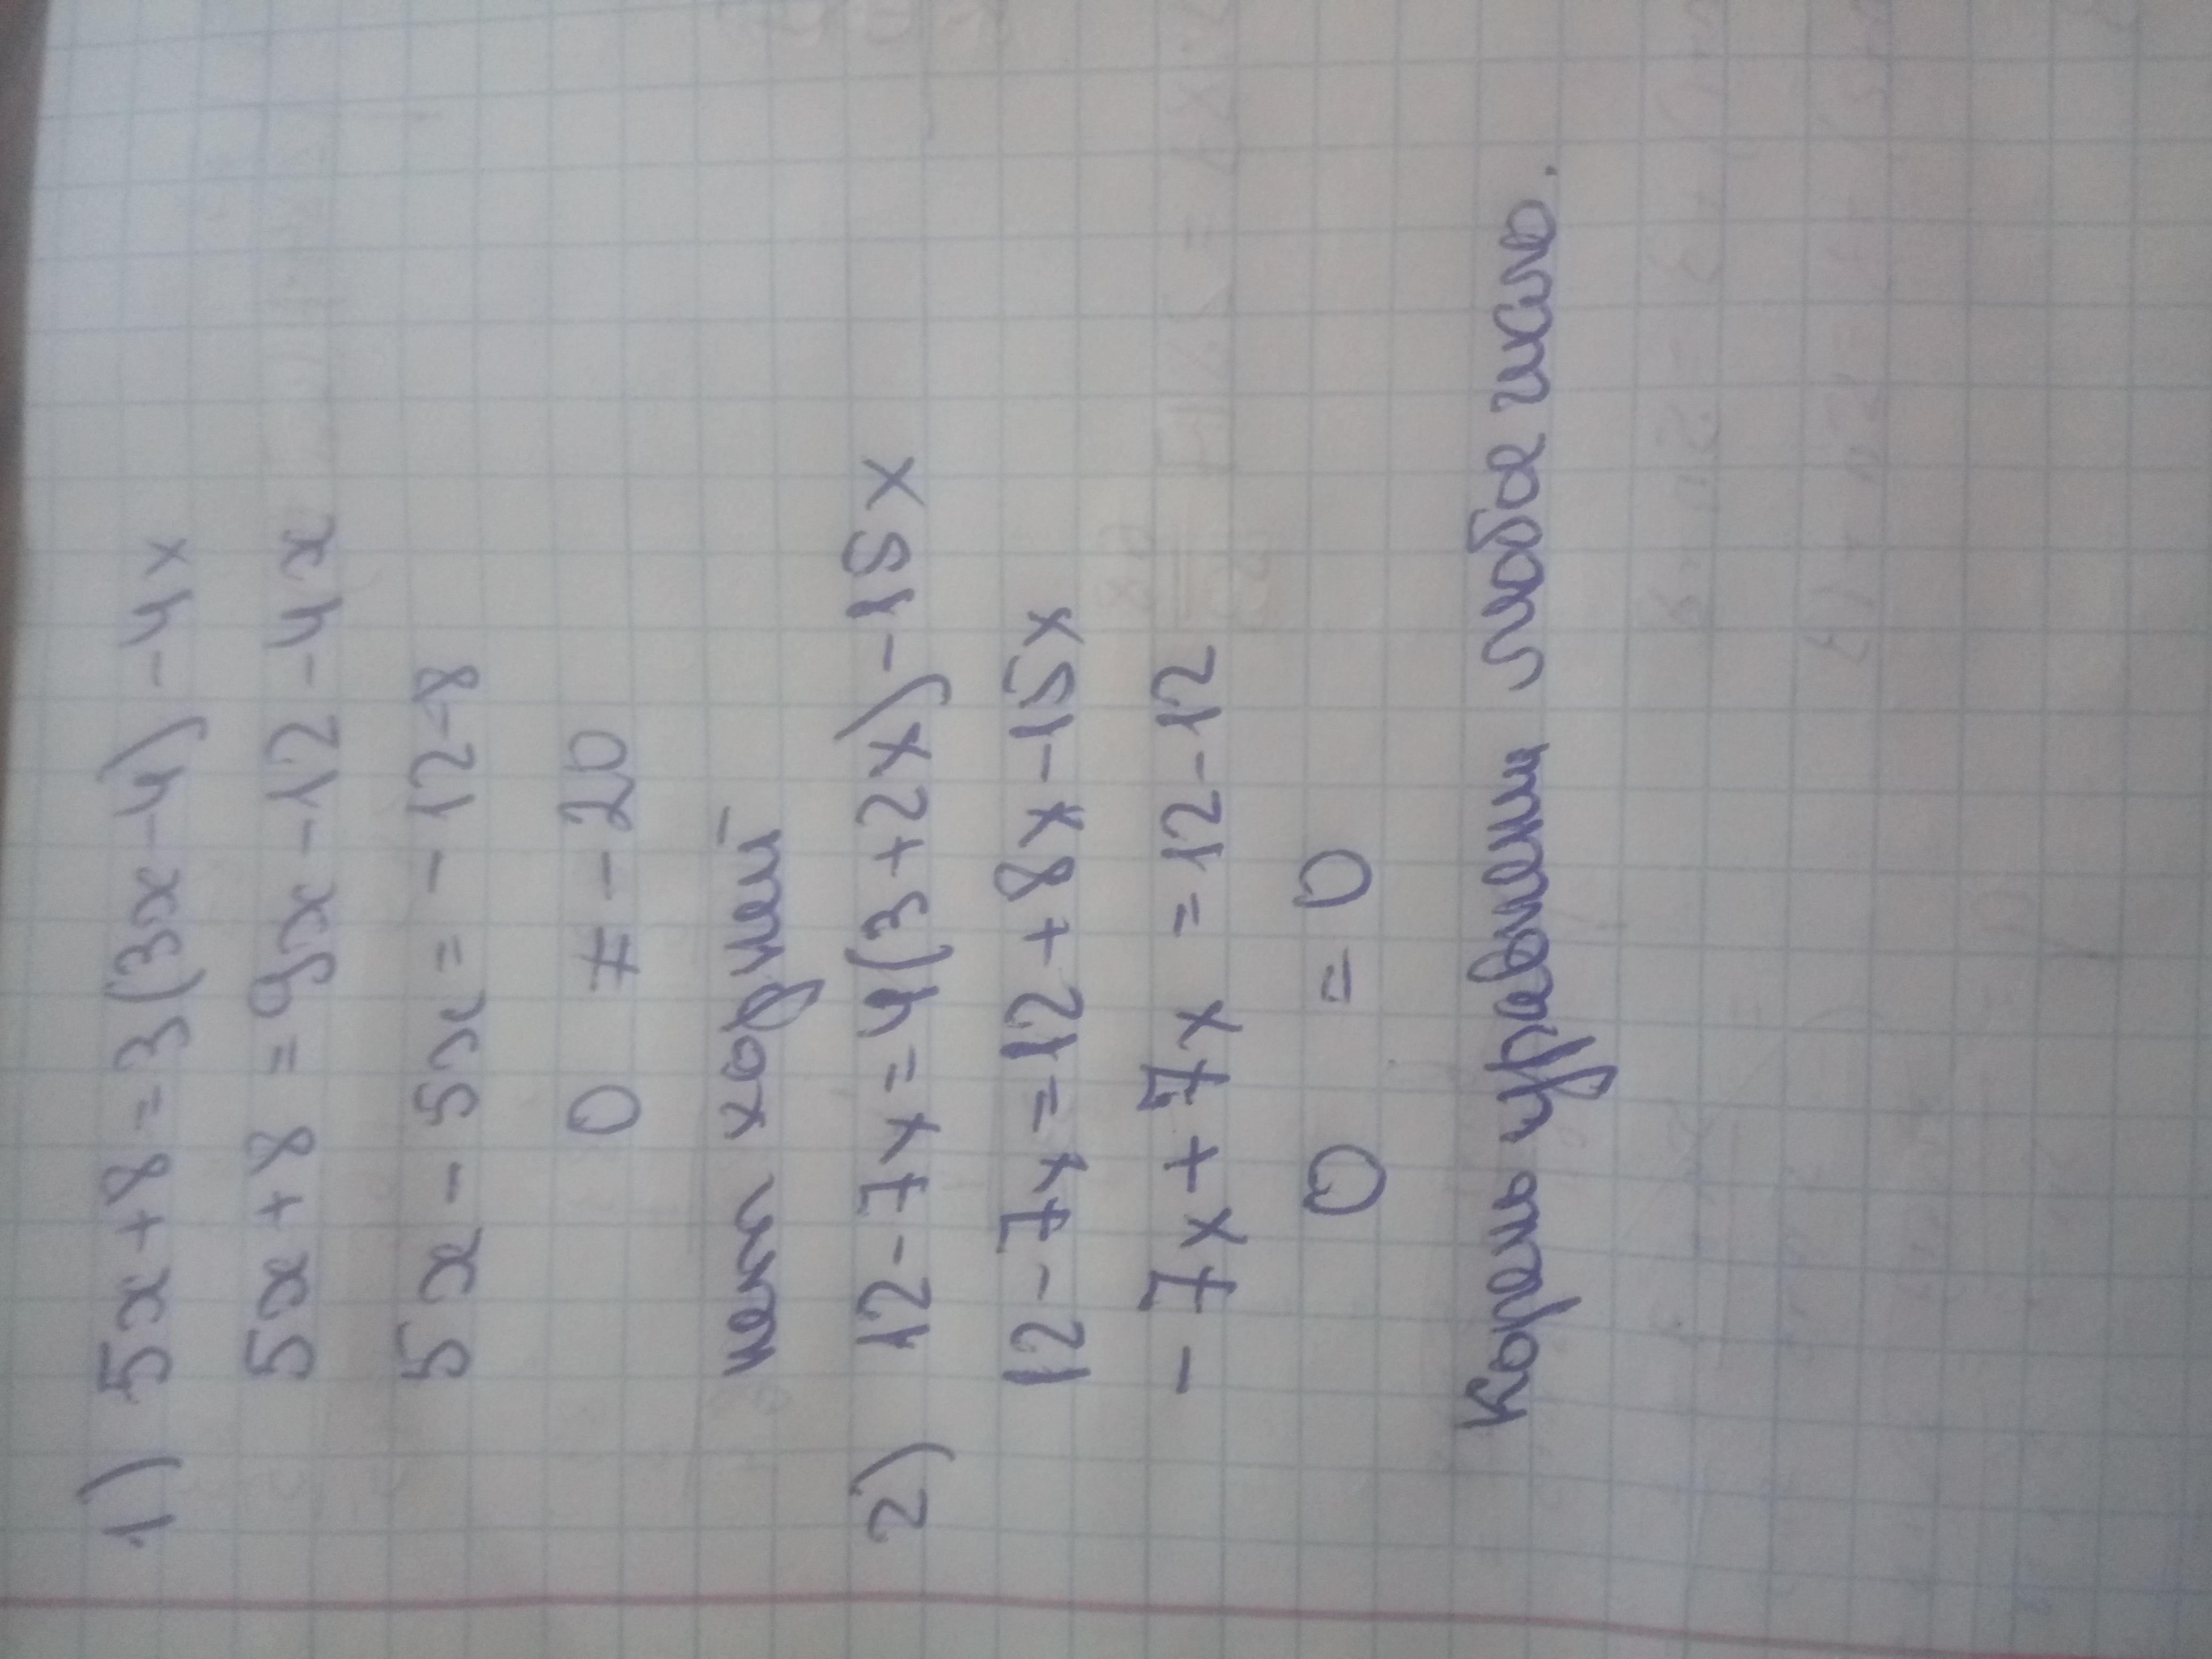 1) 5x+8=3(3x-4)-4x
5x+8=9x-12-4x
5x-5x=-12-8
0≠-20
нет корней
2) 12-7x=4(3+2x)-15x
12-7x=12+8x-15x
-7x+7x=12-12
0=0
Корень уравнени любоя число.